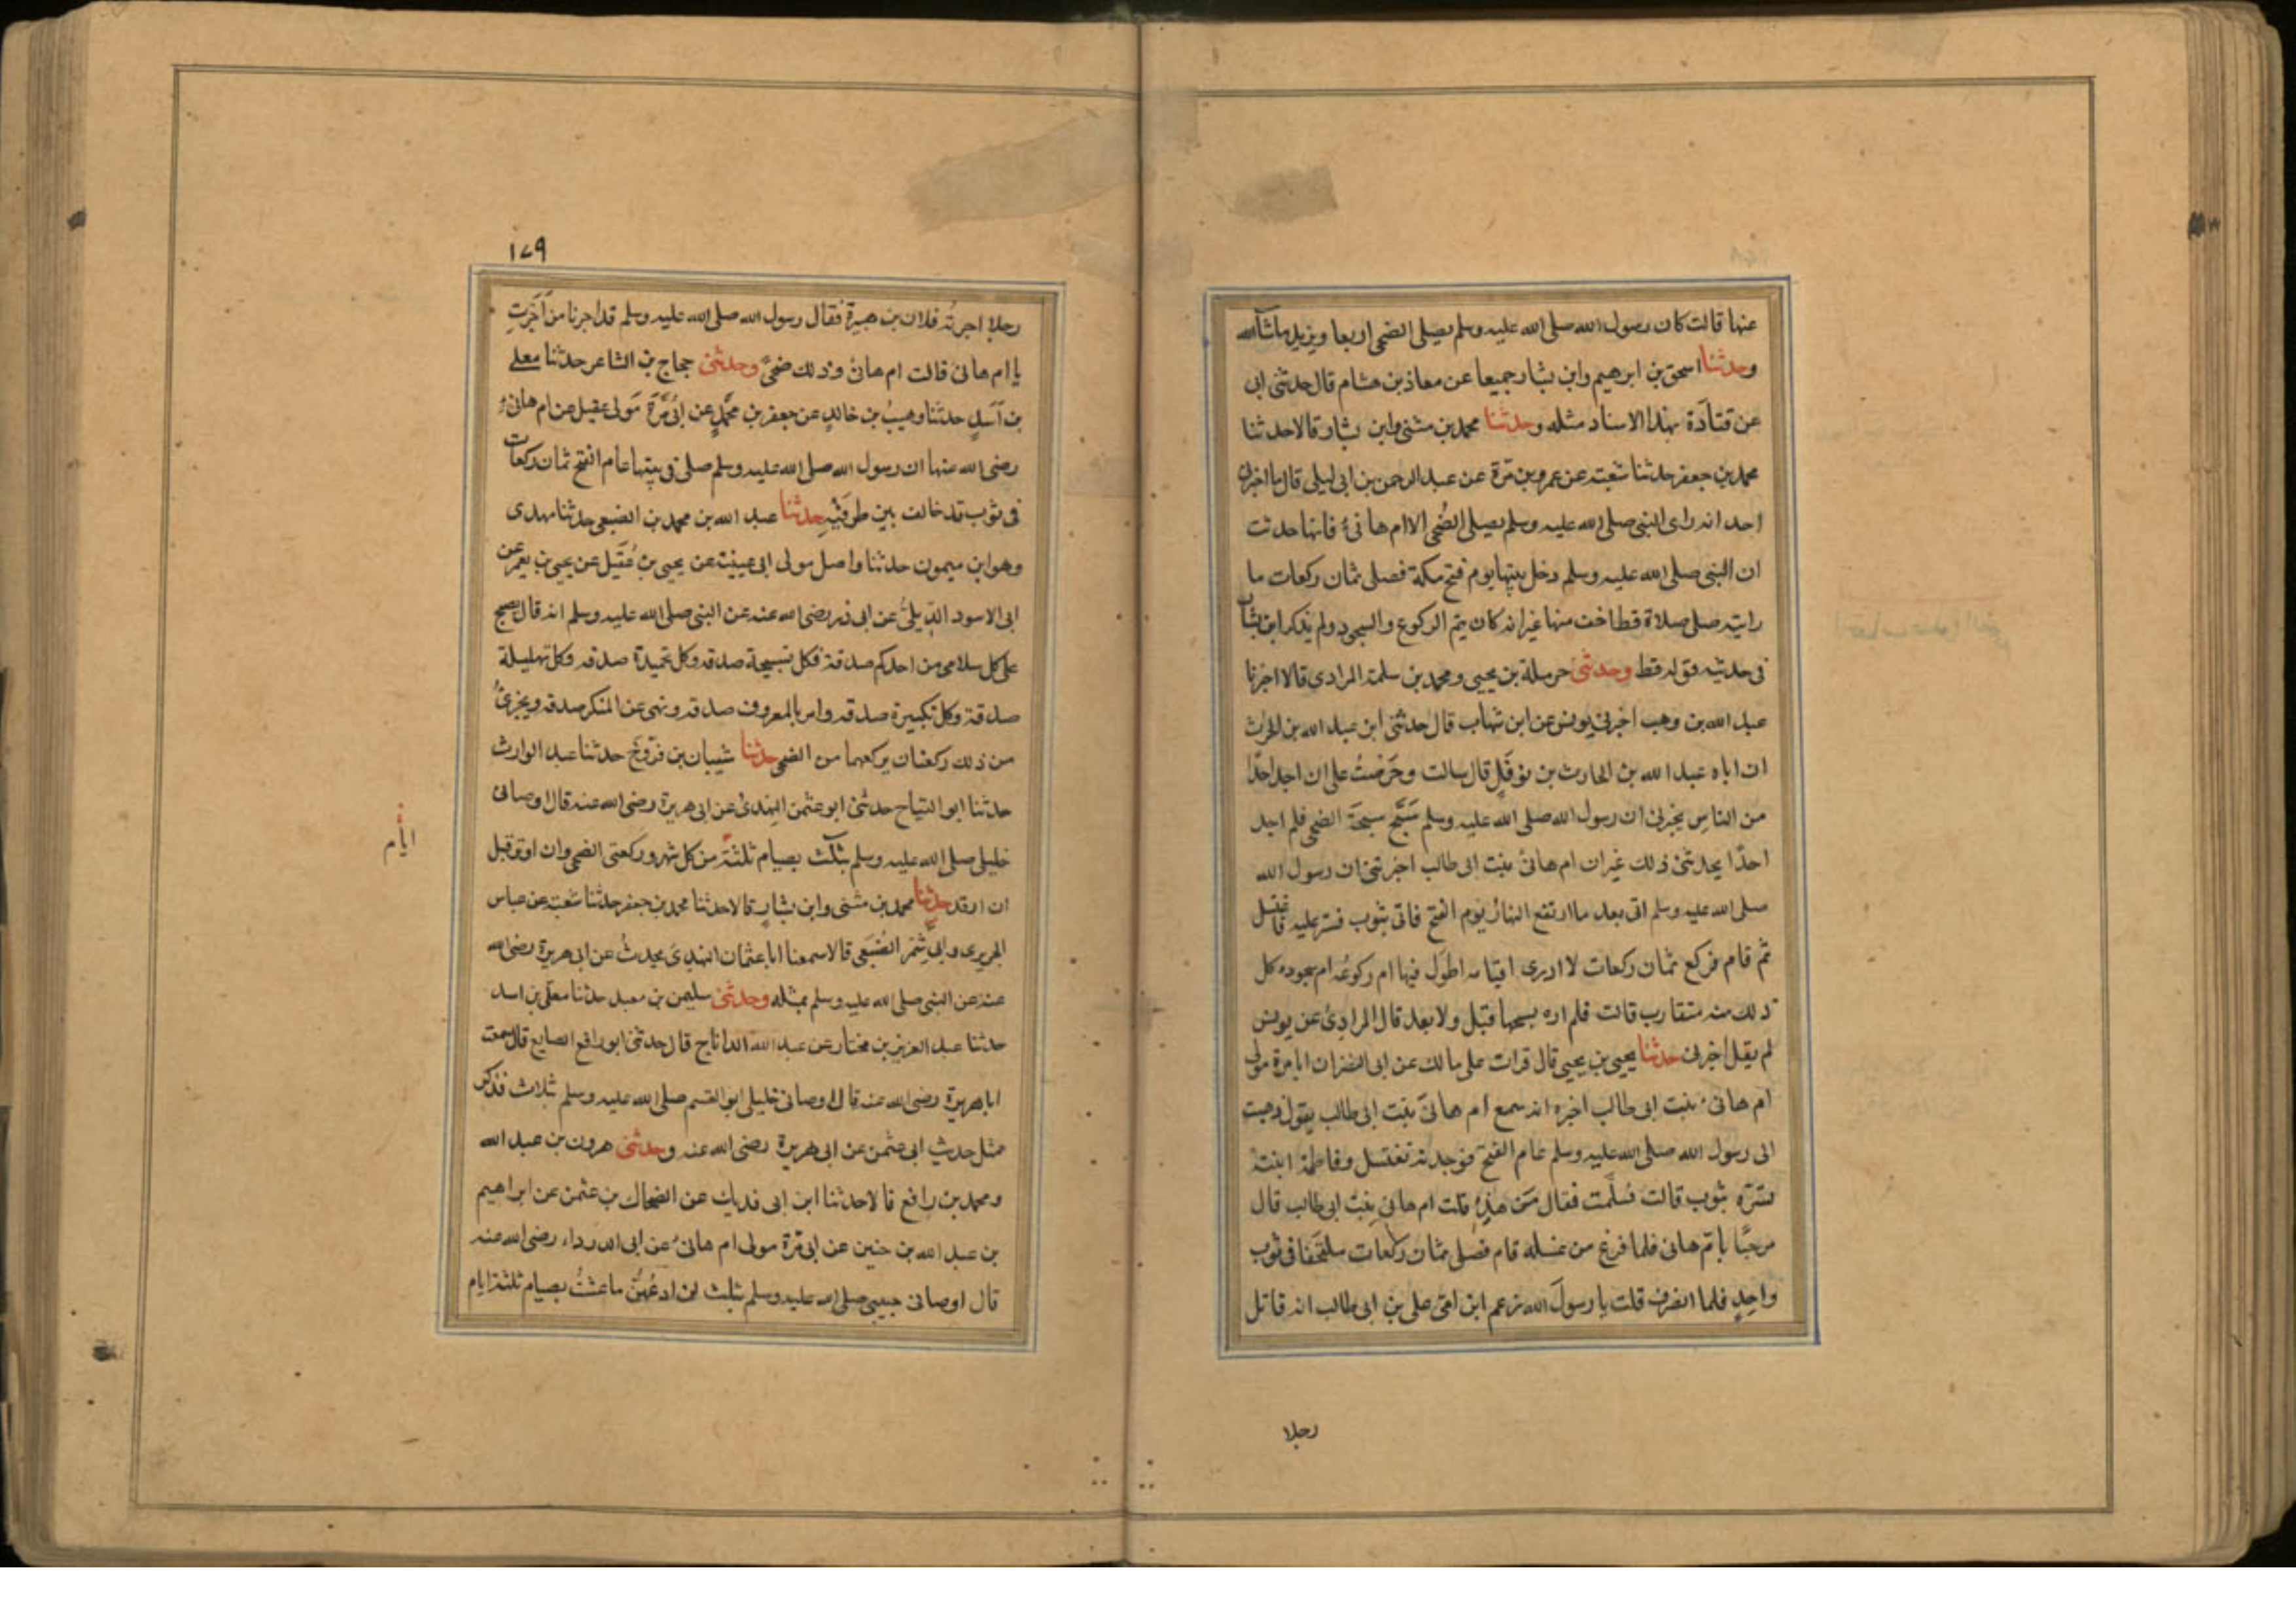 عنها قالت كان رسول الله صلى الله عليه وسلم يصلى الضحى اربعا ويزيد ما شآء الله
وحدثنا اسحق بن ابرهيم وابن بشار جميعا عن معاذ بن هشام قال حدثنى ابى
عن قتادَة بهذا الاسناد مثله وحدثنا محمد بن مثنى وابن بشار قالا حدثنا
محمد بن جعفر حدثنا شعبة عن عمرو بن مرّة عن عبد الرحمن بن ابى ليلى قال ما اخبرنى
احد انه راى النبى صلى الله عليه وسلم يصلى الضُحى الا ام هانىٔ فانها حدثت
ان النبى صلى الله عليه وسلم دخل بيتها يوم فتح مكة فصلى ثمان ركعات ما
رايته صلى صلاة قط اخف منها غير انه كان يتم الركوع والسجود ولم يذكر ابن بشار
فى حديثه قوله قط وحدثنى حرملة بن يحيى ومحمد بن سلمة المرادى قالا اخبرنا
عبد الله بن وهب اخبرنى يونس عن ابن شهاب قال حدثنى ابن عبد الله بن الحرث
ان اباه عبد الله بن الحارث بن نوفَلٍ قال سالت وحَرَصْتُ على ان اجد احدًا
من الناسِ يخبرنى ان رسول الله صلى الله عليه وسلم سَبَّحَ سبحَة الضحى فلم اجد
احدًا يحدثنى ذلك غير ان ام هانئ بنت ابى طالب اخبرتنى ان رسول الله
صلى الله عليه وسلم اتى بعد ما ارتفع النهار يوم الفتح فاتى بثوب فستر عليه فاغتسل
ثم قام فركع ثمان ركعات لا ادرى اقيامه اطوَل فيها ام ركوعُه ام سجوده كل
ذلك منه متقارب قالت فلم اره يسبحها قبل ولا بعد قال المرادِىُ عن يونس
لم يقل اخبرنى حدثنا يحيى بن يحيى قال قرات على مالك عن ابى النضر ان ابا مرة مولى
ام هانئ بنت ابى طالب اخبره انه سمع ام هانئ بنت ابى طالب يقول ذهبت
الى رسول الله صلى الله عليه وسلم عام الفتح فوجدته تغتسل وفاطمة ابنته
تسترُه بثوب قالت فسلّمت فقال مَن هذِهِ قلت ام هانئ بنت ابى طالب قال
مرحبًا بام هانى فلما فرغ من غسله قام فصلى ثمان ركعات ملتحفا فى ثوب
واحِدٍ فلما انصرف قلت يا رسولَ الله زعم ابن امى على بن ابى طالب انه قاتل
رجلا
١٧٩
رجلا اجرتُه فلان بن هبيرة فقال رسول الله صلى الله عليه وسلم قد اجرنا من آجَرتِ
يا ام هانئ قالت ام هانئ وذلك ضحىً وحدثنى حجاج بن الشاعر حدثنا معلى
بن آسَدٍ حدثنا وهيبُ بن خالدٍ عن جعفر بن محمّدٍ عن ابىُ مُرَّة مَولى عقيل عن ام هانئٍ
رضى الله عنها ان رسول الله صلى الله عليه وسلم صلى فى بيتها عام الفتح ثمان ركعات
فى ثوب قد خالف بين طرفَيْهِ حدثنا عبد الله بن محمد بن الضبعى حدثنا مهدى
وهو ابن ميمون حدثنا واصل مولى ابى عيينة عن يحيى بن عُقَيل عن يحيى بن يعمر عن
ابى الاسود الدِّيلىُّ عن ابى ذر رضى الله عنه عن النبى صلى الله عليه وسلم انه قال يصبح
على كل سلامى من احدكم صدقة فكل تسبيحة صدقه وكل تحميدة صدقه وكل تهليلة
صدقة وكل تكبيرة صدقه وامر بالمعروف صدقه ونهى عن المنكر صدقه ويجزئُ
من ذلك ركعتان يركعهما من الضحى حدثنا شيبان بن فرّوخَ حدثنا عبد الوارث
حدثنا ابو التياح حدثنى ابو عثمن النهدىُ عن ابى هريرة رضى الله عنه قال اوصانى
خليلى صلى الله عليه وسلم بثلَث بصيام ثلثة من كل شهر وركعتى الضحى وان اوتر قبل
ايام
ان ارقد حدثنا محمد بن مثنى وابن بشارٍ قالا حدثنا محمد بن جعفر حدثنا شعبة عن عباس
الجريرى وابى شِمْر الضُبَعى قالا سمعنا ابا عثمان النهدِىَ يحدثُ عن ابى هريرة رضى الله
عنه عن النبى صلى الله عليه وسلم بمثله وحدثنى سليمن بن معبد حدثنا معلّى بن اسد
حدثنا عبد العزيز بن مختار عن عبد الله الداناج قال حدثنى ابو رافع الصايغ قال سمعت
ابا هريرة رضى الله عنه قال اوصانى خليلى ابو القسم صلى الله عليه وسلم بثلاث فذكر
مثل حديث ابى عثمن عن ابى هريرة رضى الله عنه وحدثنى هرون بن عبد الله
ومحمد بن رافع قالا حدثنا ابن ابى فديك عن الضحاك بن عثمن عن ابراهيم
بن عبد الله بن حنين عن ابى مُرة مولى ام هانئ عن ابى الدرداء رضى الله عنه
قال اوصانى حبيبى صلى الله عليه وسلم بثلث لن ادعُهنَّ ما عشتُ بصيام ثلثة ايام